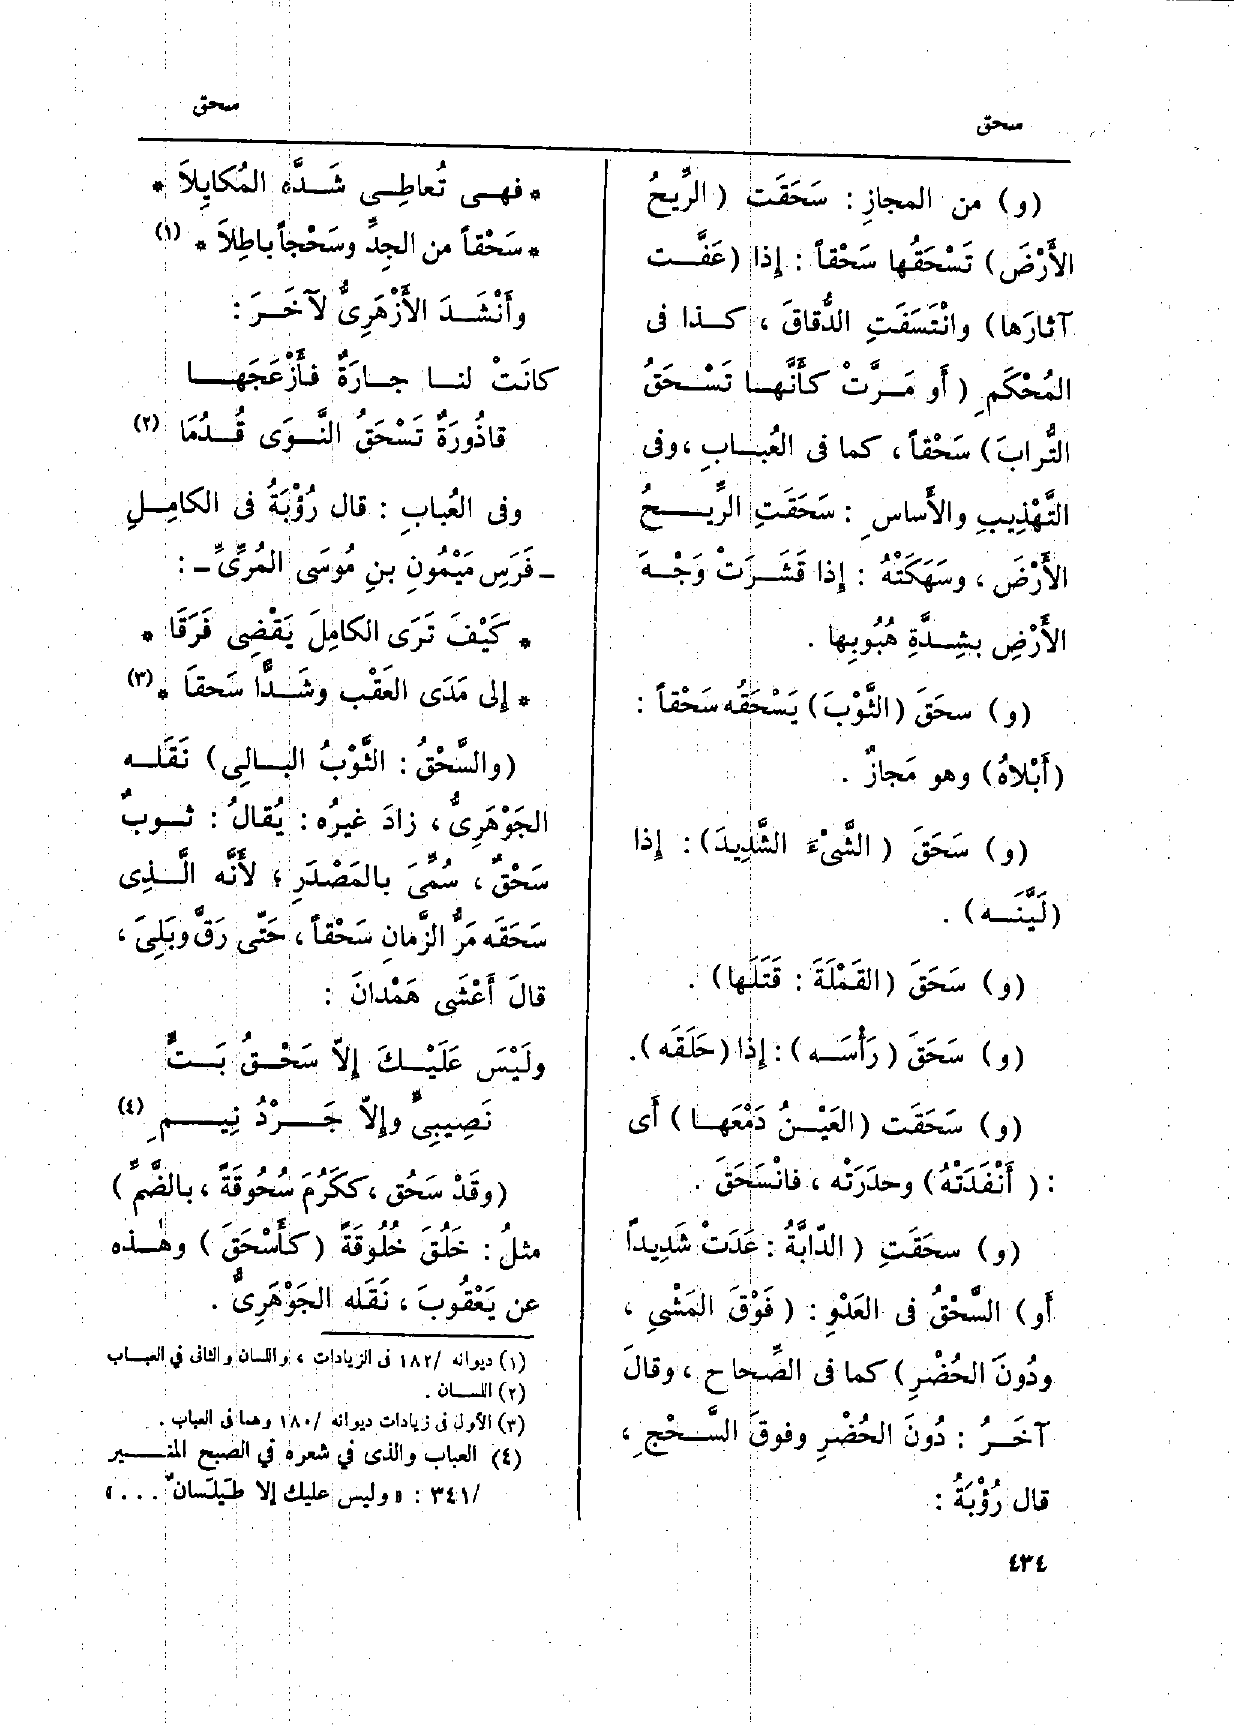 سحق
سحق
(و) من المجازِ : سَحَقَت ( الرِّيحُ
الأَرْضَ) تَسْحَقُها سَحْقاً : إِذا (عَفَّت
آثارَها) وانْتَسَفَتِ الدُّقاقَ ، كذا فى
المُحْكَمِ ( أَو مَرَّتْ كأَنَّها تَسْحَقُ
التُّرابَ) سَحْقاً ، كما فى العُبابِ ، وفى
التَّهْذِيبِ والأَساسِ : سَحَقَتِ الرِّيحُ
الأَرْضَ ، وسَهَكَتْهُ : إِذا قَشَرَتْ وَجْهَ
الأَرْضِ بشِدَّةِ هُبُوبِها .
(و) سحَقَ (الثَّوْبَ) يَسْحَقُه سَحْقاً :
(أَبْلاهُ) وهو مَجازٌ .
(و) سَحَقَ ( الشَّىْءَ الشَّدِيدَ) : إِذا
(لَيَّنَه) .
(و) سَحَقَ (القَمْلَةَ : قَتَلَها) .
(و) سَحَقَ (رَأْسَه) : إِذا (حَلَقَه) .
(و) سَحَقَت (العَيْنُ دَمْعَها) أَى
: ( أَنْفَدَتْهُ) وحدَرَتْه ، فانْسَحَقَ .
(و) سحَقَتِ ( الدّابَّةُ : عَدَتْ شَدِيداً
أَو) السَّحْقُ فى العَدْوِ : ( فَوْقَ المَشْىِ ،
ودُونَ الحُضْرِ) كما فى الصِّحاحِ ، وقالَ
آخَرُ : دُونَ الحُضْرِ وفوقَ السَّحْجِ ،
قال رُؤْبَةُ :
* فهى تُعاطِى شَدَّه المُكايِلاَ *
* سَحْقاً من الجِدِّ وسَحْجاً باطِلاَ * (١)
وأَنْشَدَ الأَزْهَرِىُّ لآخَرَ :
كانَتْ لنا جارَةٌ فأَزْعَجَها
قاذُورَةٌ تَسْحَقُ النَّوَى قُدُمَا (٢)
وفى العُبابِ : قال رُؤْبَةُ فى الكامِلِ
ـ فَرَسِ مَيْمُونِ بنِ مُوسَى المُرِّىِّ ـ :
* كَيْفَ تَرَى الكامِلَ يَقْضِى فَرَقَا *
* إِلى مَدَى العَقْبِ وشَدًّا سَحقَا * (٣)
(والسَّحْقُ : الثَّوْبُ البالِى) نَقَلَه
الجَوْهَرِىُّ ، زادَ غيرُه : يُقالُ : ثوبٌ
سَحْقٌ ، سُمِّىَ بالمَصْدَرِ ؛ لأَنَّه الَّذِى
سَحَقَه مَرُّ الزَّمانِ سَحْقاً ، حَتّى رَقَّ وبَلِىَ ،
قالَ أَعْشَى هَمْدانَ :
ولَيْسَ عَلَيْكَ إِلاّ سَحْقُ بَتٍّ
نَصِيبِىٌّ وإِلاّ جَرْدُ نِيمِ (٤)
(وقَدْ سَحُق ، ككَرُمَ سُحُوقَةً ، بالضَّمِّ)
مثلُ : خَلُقَ خُلُوقَةً ( كأَسْحَقَ ) وهٰذه
عن يَعْقُوبَ ، نَقَله الجَوْهَرِىُّ .
(١) ديوانه /١٨٢ فى الزيادات ، واللسان والثانى في العباب
(٢) اللسان .
(٣) الأول فى زيادات ديوانه /١٨٠ وهما فى العباب .
(٤) العباب والذى في شعره في الصبح المنير
/٣٤١ : « وليس عليك إلا طَيلَسان ... »
٤٣٤